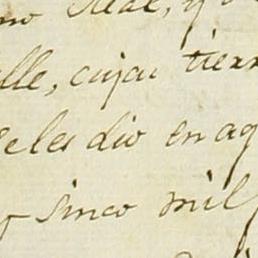 mo Real, y
lle, cujai tierr
se les dio en aq
y sinco mil